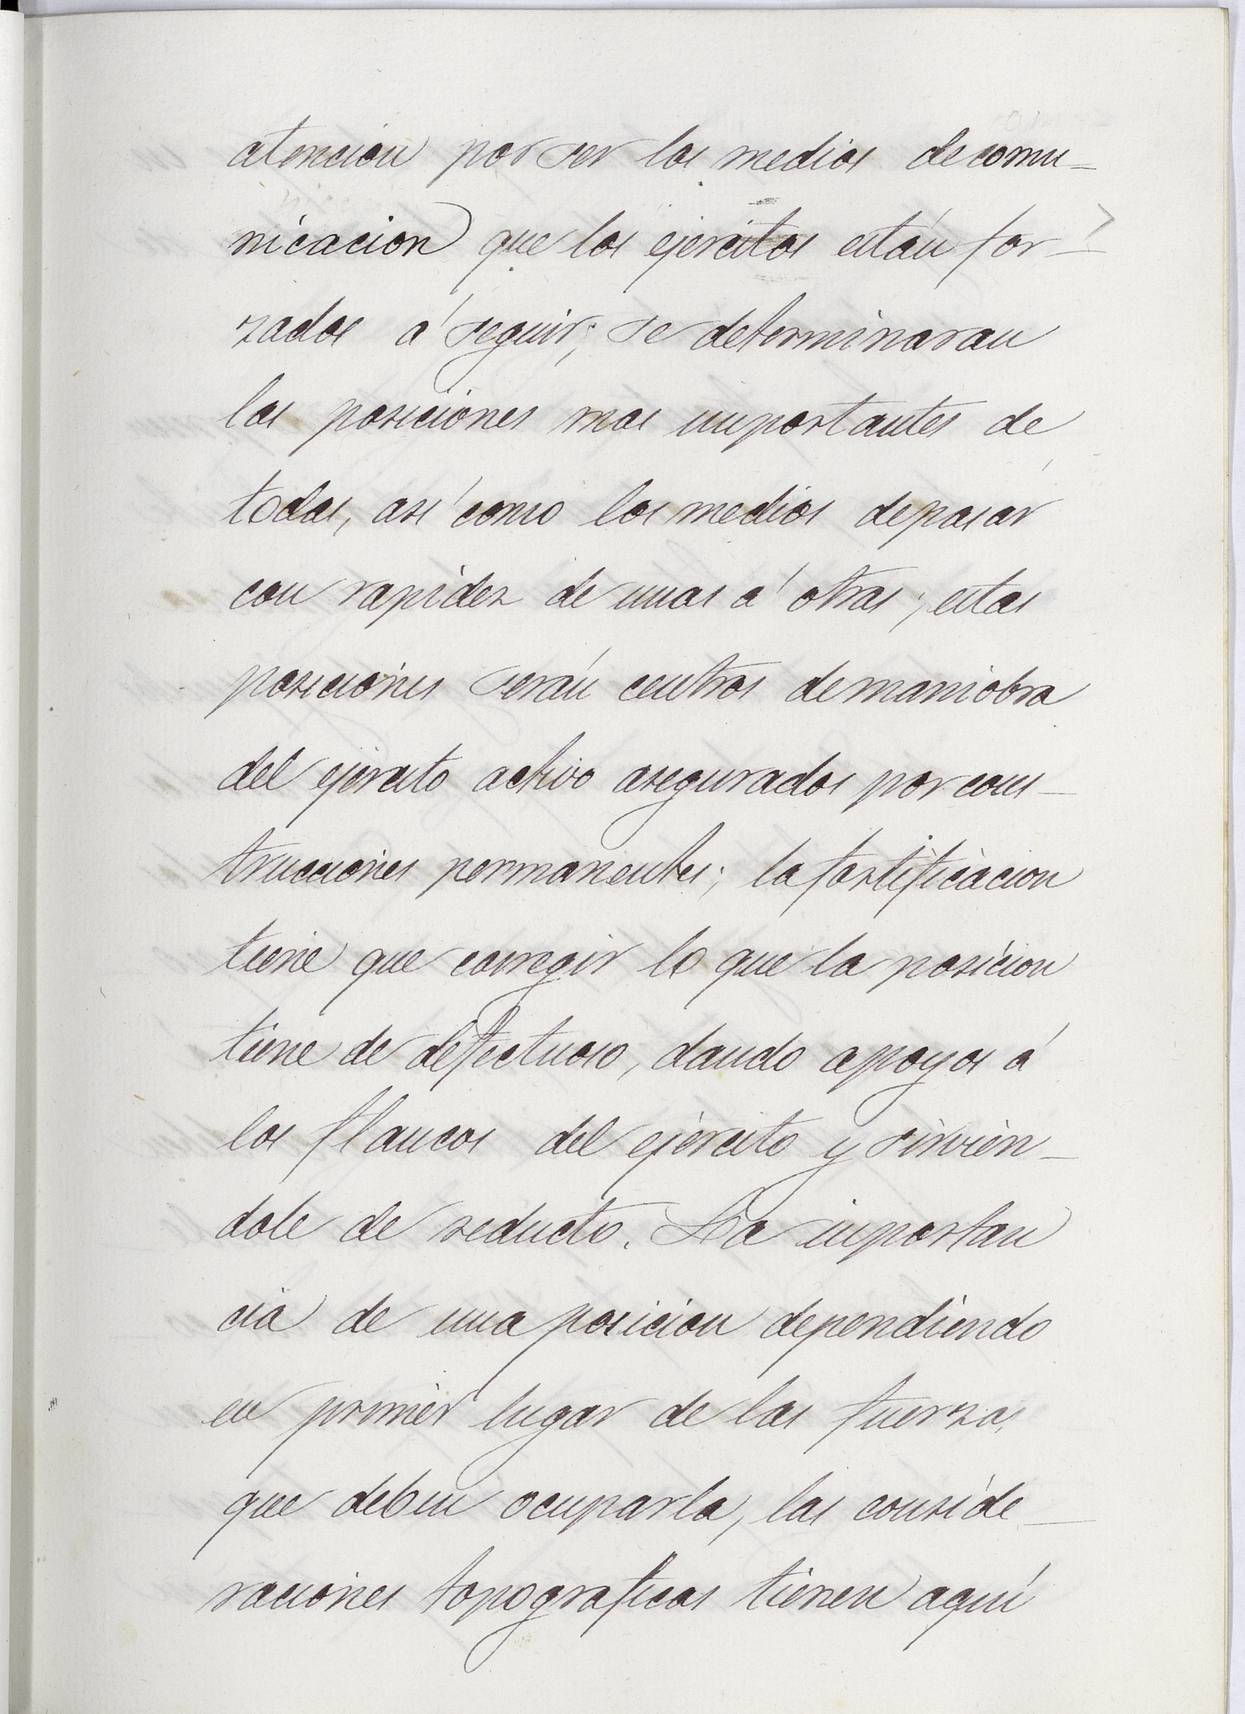 atencion por ser los medios de comu-
nicacion que los ejercitos están for-
zados á seguir; se determinaran
las posiciones mas importantes de
todas, así como los medios de pasar
con rapidez de unas á otras; estas
posiciones serán centros de maniobra
del ejército activo asegurados por cons-
trucciones permanentes; la fortificacion
tiene que corregir lo que la posicion
tiene de defectuoso, dando apoyos á
los flancos del ejército y sirvién-
dole de reducto. La importan
cia de una posicion dependiendo
en primer lugar de las fuerzas
que deben ocuparla, las conside-
raciones topograficas tienen aquí